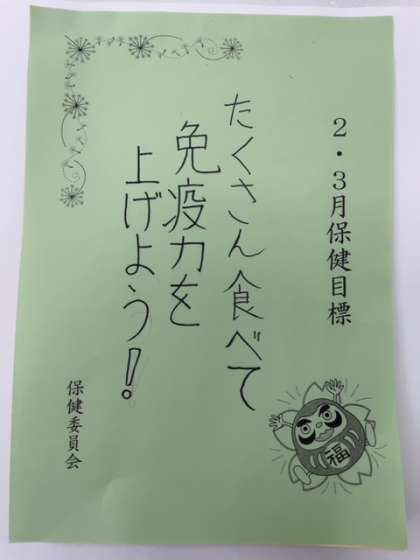 ２・３月保健目標
たくさん食べて
免疫力を
上げよう！
保健委員会
福